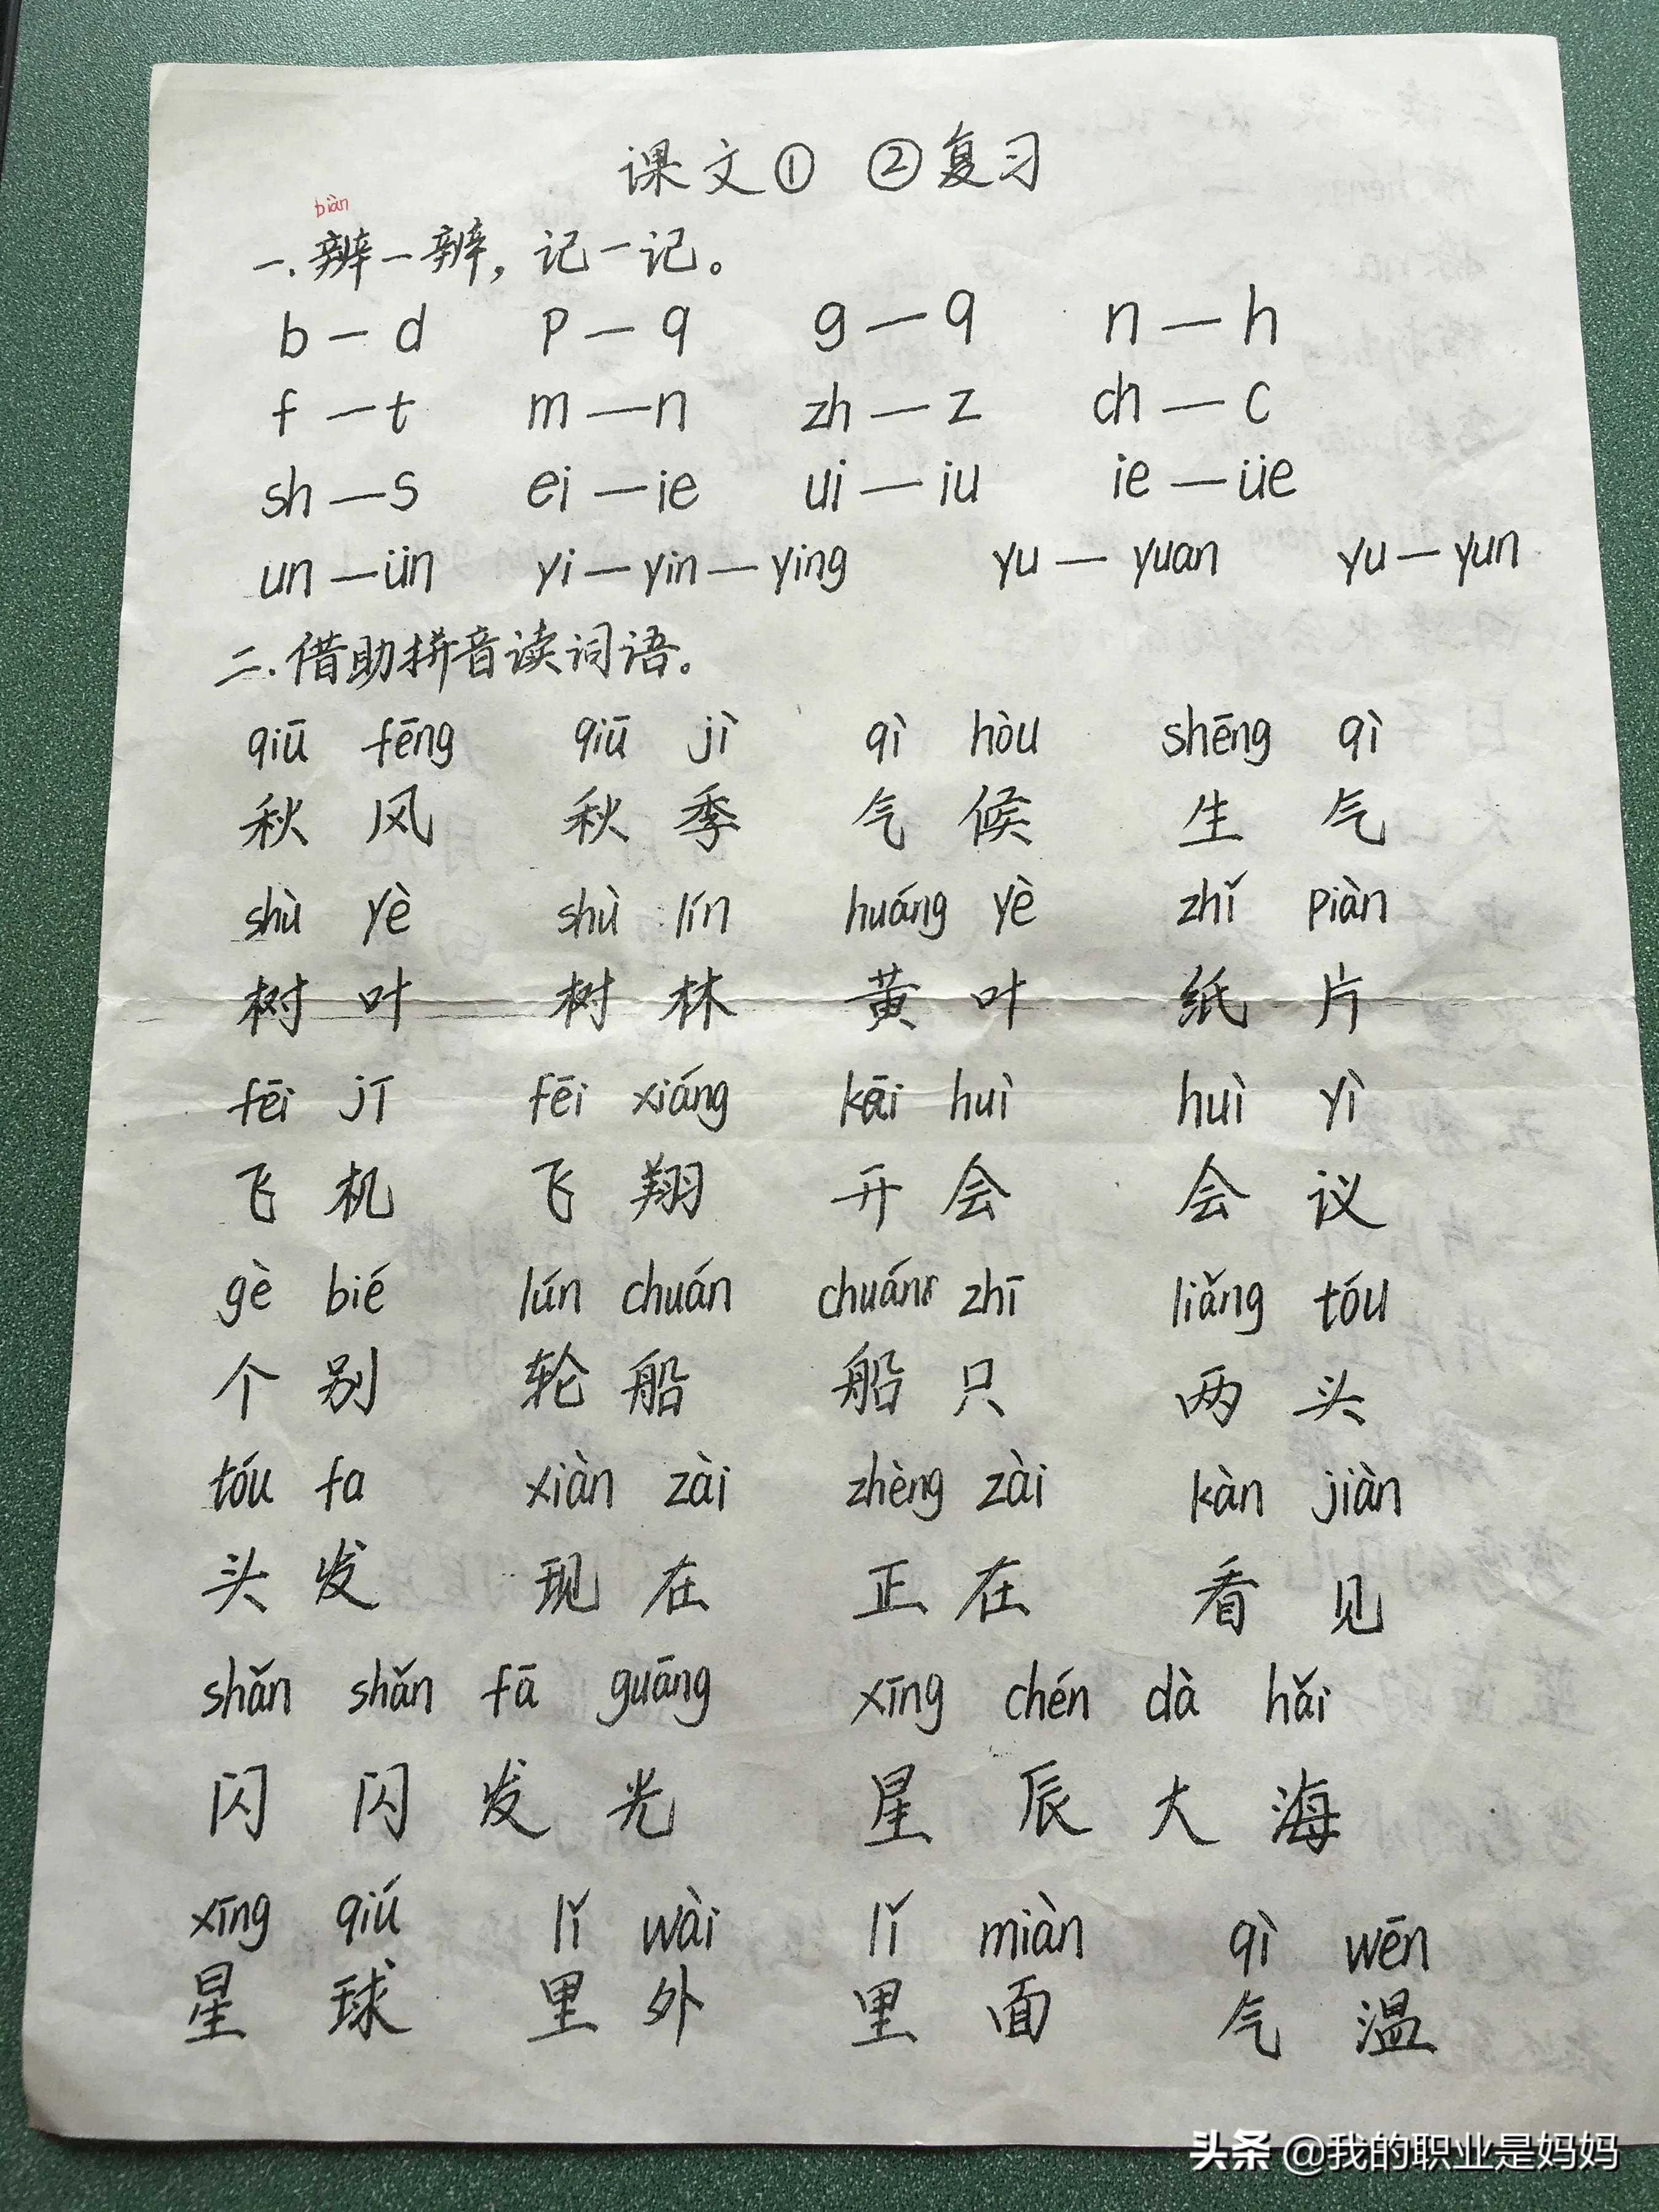 课文① ②复习
biàn
一.辨一辨，记一记。
b—d p—q g—q n—h
f—t m—n zh—z ch—c
sh—s ei—ie ui—iu ie—üe
un—ün yi—yin—ying yu—yuan yu—yun
二.借助拼音读词语。
qiū fēng qiū jì qì hòu shēng qì
秋风 秋季 气候 生气
shù yè shù lín huáng yè zhǐ piàn
树叶 树林 黄叶 纸片
fēi jī fēi xiáng kāi huì huì yì
飞机 飞翔 开会 会议
gè bié lún chuán chuán zhī liǎng tóu
个别 轮船 船只 两头
tóu fa xiàn zài zhèng zài kàn jiàn
头发 现在 正在 看见
shǎn shǎn fā guāng xīng chén dà hǎi
闪闪发光 星辰大海
xīng qiú lǐ wài lǐ miàn qì wēn
星球 里外 里面 气温
头条 @我的职业是妈妈